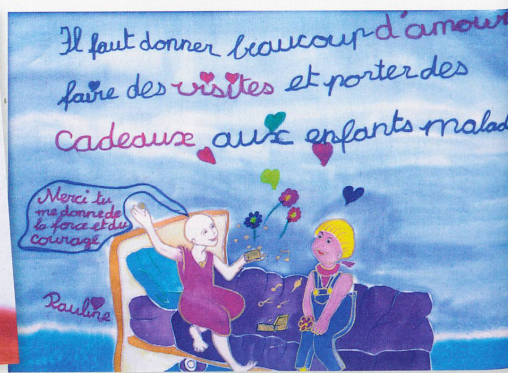 Il faut donner beaucoup d'amour
faire des visites et porter des
cadeaux aux enfants malad
Merci tu
me donne de
la force et du
courage
Pauline